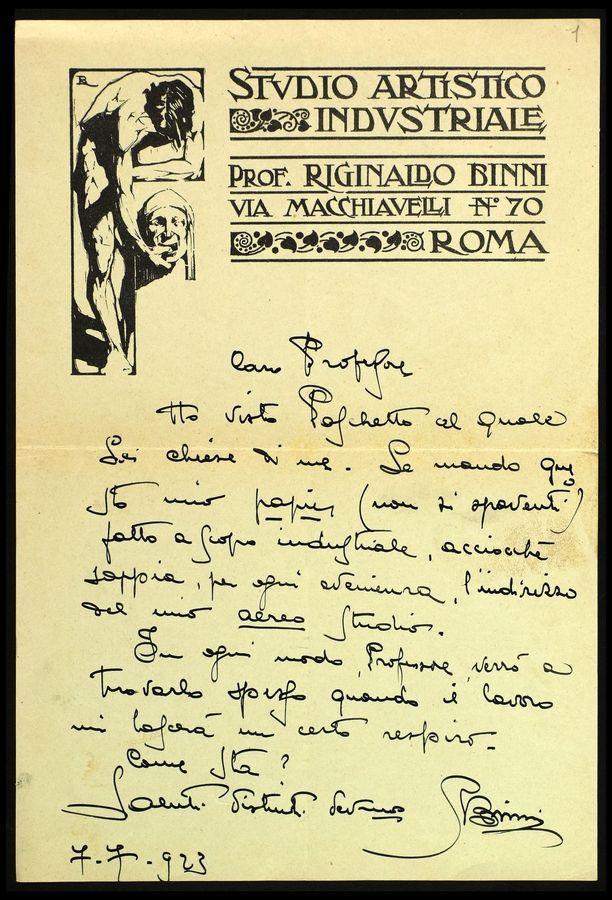 1
BR
STVDIO ARTISTICO
INDVSTRIALE
PROF. RIGINALDO BINNI
VIA MACCHIAVELLI No 70
ROMA
Caro Professore
Ho visto Paschetto al quale
Lei chiese di me. Le mando que
sto mio papier (non si spaventi!)
fatto a scopo industriale, acciocchè
sappia, per ogni evenienza, l'indirizzo
del mio aereo studio.
In ogni modo, Professore, verrò a
trovarlo spesso quando il lavoro
mi lascerà un certo respiro.
Come sta?
Saluti distinti devmo RBinni
7-7-923